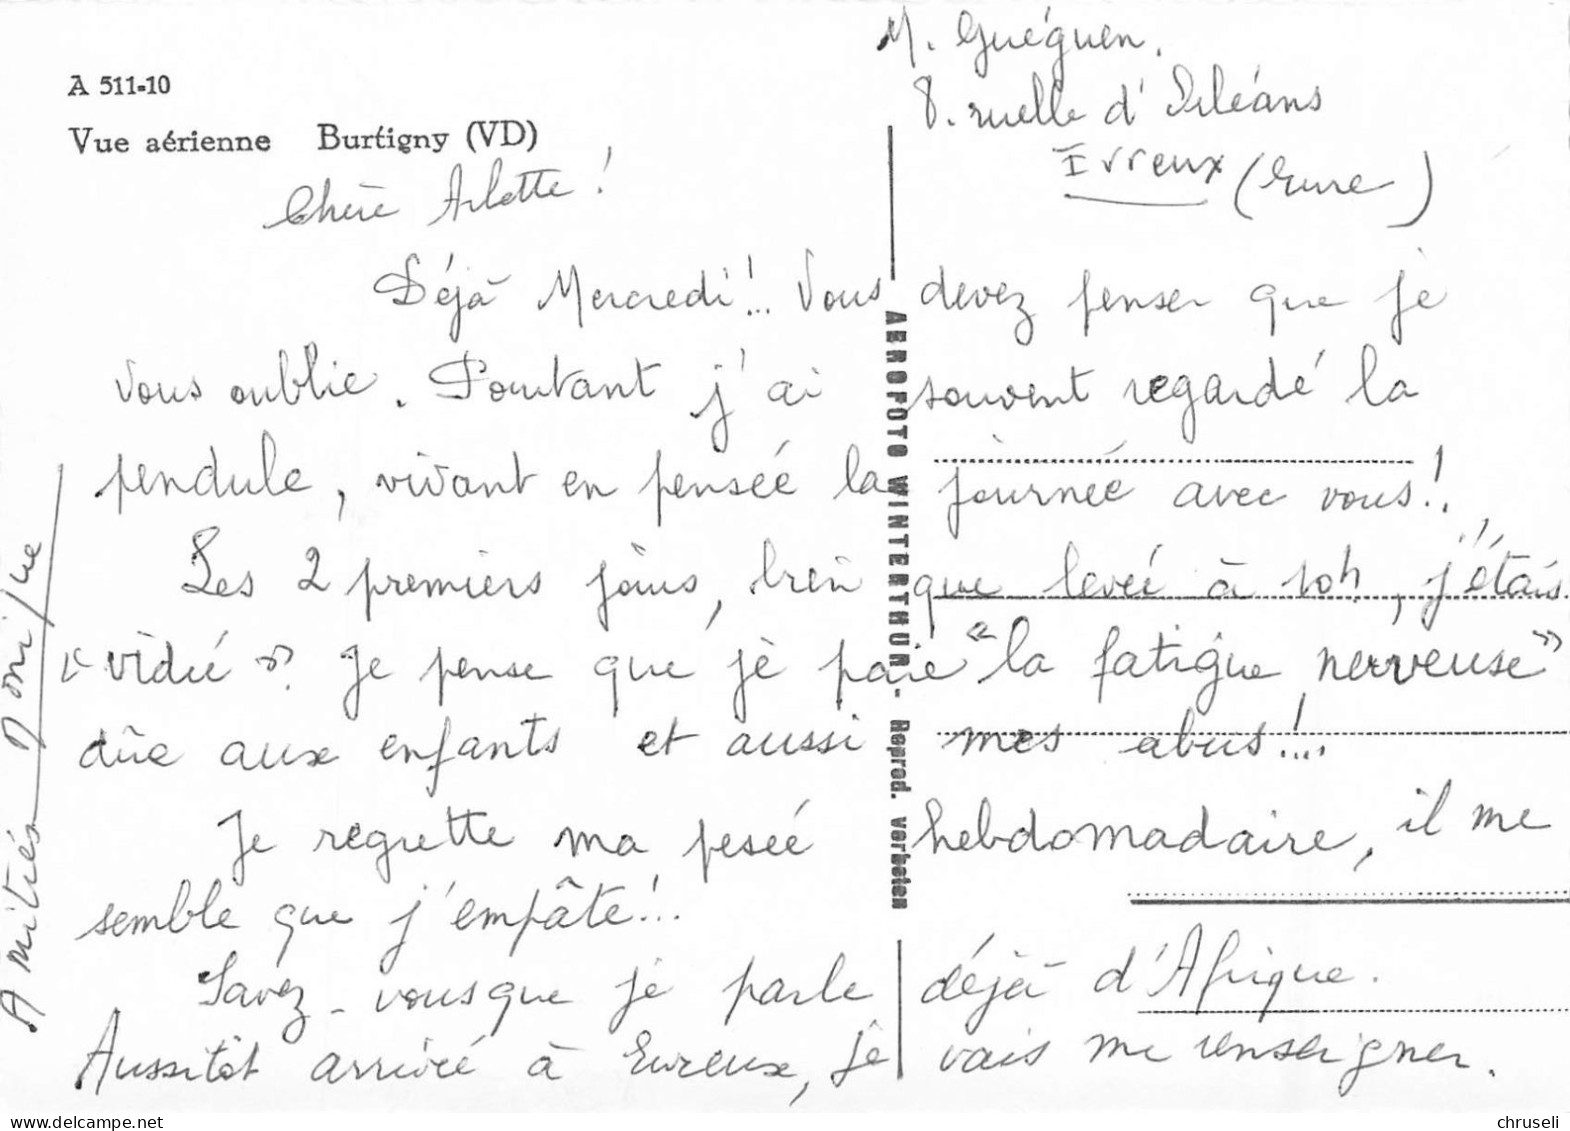 A 511-10
Vue aérienne Burtigny (VD)
M. Guéguen.
8. ruelle d'Orléans
Evreux (Eure)
Chère Arlette !
Déjà Mercredi !.. Vous devez penser que je
vous oublie. Pourtant j'ai souvent regardé la
pendule, vivant en pensée la journée avec vous !..
Les 2 premiers jours, bien que levée à 10h, j'étais
« vidée ». Je pense que je paie "la fatigue nerveuse"
dûe aux enfants et aussi mes abus !...
Je regrette ma pesée hebdomadaire, il me
semble que j'empâte !..
Savez-vous que je parle déjà d'Afrique.
Aussitôt arrivée à Evreux, je vais me renseigner.
Amitiés Monique
AEROFOTO WINTERTHUR - Reprod. verboten
chruseli